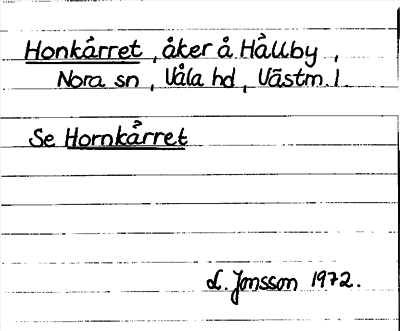 Honkärret, åker å Hållby,
Nora sn, Våla hd, Västm. l.
Se Hornkärret
L. Jonsson 1972.